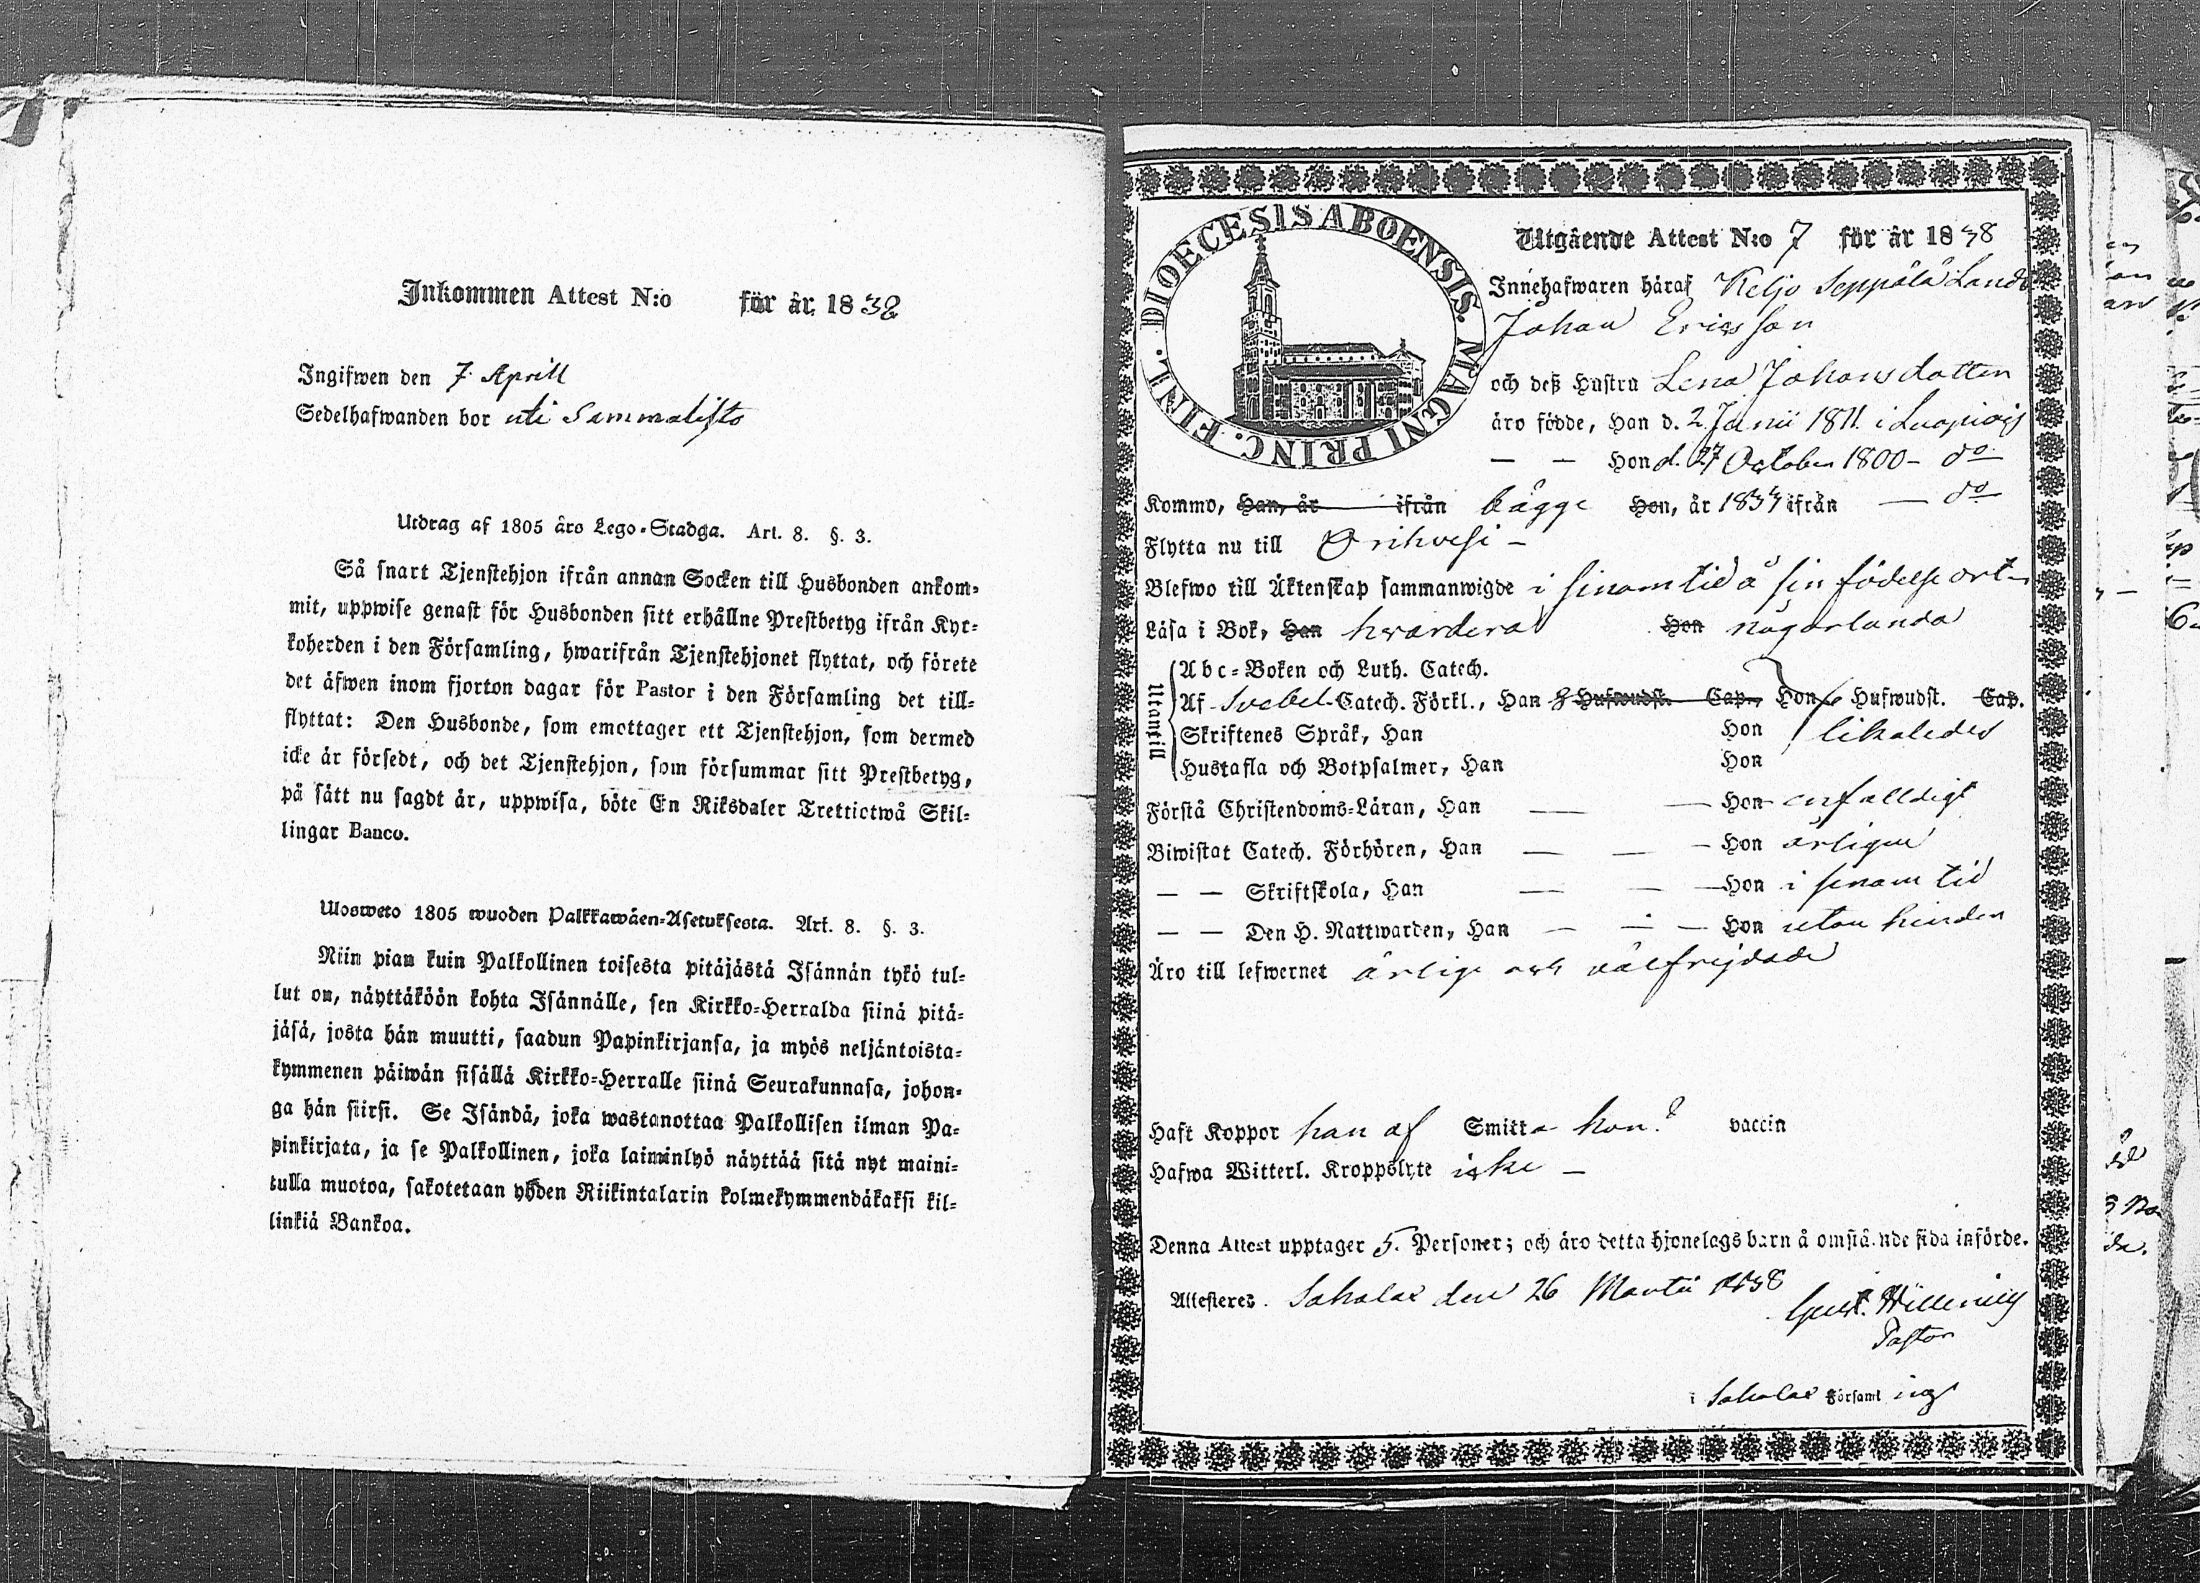 Inkommen Attest N:o för år 1838
Ingifwen den 7 Aprill
Sedelhafwanden bor uti Sammalisto
Utdrag af 1805 års Lego-Stadga. Art. 8. §. 3.
Så snart Tjenstehjon ifrån annan Socken till Husbonden ankom-
mit, uppwise genast för Husbonden sitt erhållne Prestbetyg ifrån Kyr-
koherden i den Församling, hwarifrån Tjenstehjonet flyttat, och förete
det äfwen inom fjorton dagar för Pastor i den Församling det till-
flyttat: Den Husbonde, som emottager ett Tjenstehjon, som dermed
icke är försedt, och det Tjenstehjon, som försummar sitt Prestbetyg,
på sätt nu sagdt är, uppwisa, böte En Riksdaler Trettiotwå Skil-
lingar Banco.
Ulosweto 1805 wuoden Palkkawäen-Asetuksesta. Art. 8. §. 3.
Niin pian kuin Palkollinen toisesta pitäjästä Isännän tykö tul-
lut on, näyttäköön kohta Isännälle, sen Kirkko-Herralda siinä pitä-
jäsä, josta hän muutti, saadun Papinkirjansa, ja myös neljäntoista-
kymmenen päiwän sisällä Kirkko-Herralle siinä Seurakunnasa, johon-
ga hän siirsi. Se Isändä, joka wastanottaa Palkollisen ilman Pa-
pinkirjata, ja se Palkollinen, joka laiminlyö näyttää sitä nyt maini-
tulla muotoa, sakotetaan yhden Riikintalarin kolmekymmendäkaksi kil-
linkiä Bankoa.
DIOECESIS ABOENSIS. MAGNI PRINC. FINL.
Utgående Attest N:o 7 för år 1838
Innehafwaren häraf Keljo Seppälä Landb
Johan Ericsson
och deß Hustru Lena Johansdotter
äro födde, Han d. 2 Junii 1811 i
— — Hon d. 27 October 1800 – do
Kommo, Han, år ifrån bägge Hon, år 1834 ifrån — do
Flytta nu till Orihvesi –
Blefwo till Äktenskap sammanwigde i sinom tid å sin födelse ort
Läsa i Bok, Han hvardera Hon någorlunda
Utantill
Abc-Boken och Luth. Catech.
Af Svebel. Catech. Förkl., Han 8 Hufwudst. Cap., Hon 6 Hufwudst. Cap.
Skriftenes Språk, Han Hon likaledes
Hustafla och Botpsalmer, Han Hon
Förstå Christendoms-Läran, Han — — Hon enfalldigt
Biwistat Catech. Förhören, Han — — — Hon årligen
— — Skriftskola, Han — — — Hon i sinom tid
— — Den H. Nattwarden, Han — — — Hon utan hinder
Äro till lefwernet ärlige och välfrejdade
Haft Koppor han af Smitta hon? vaccin
Hafwa Witterl. Kroppslyte icke –
Denna Attest upptager 5. Personer; och äro detta hjonelags barn å omstående sida införde.
Attesteres. Sahalax den 26 Martii 1838
Gust. Willenius
Pastor
i Sahalax Församling